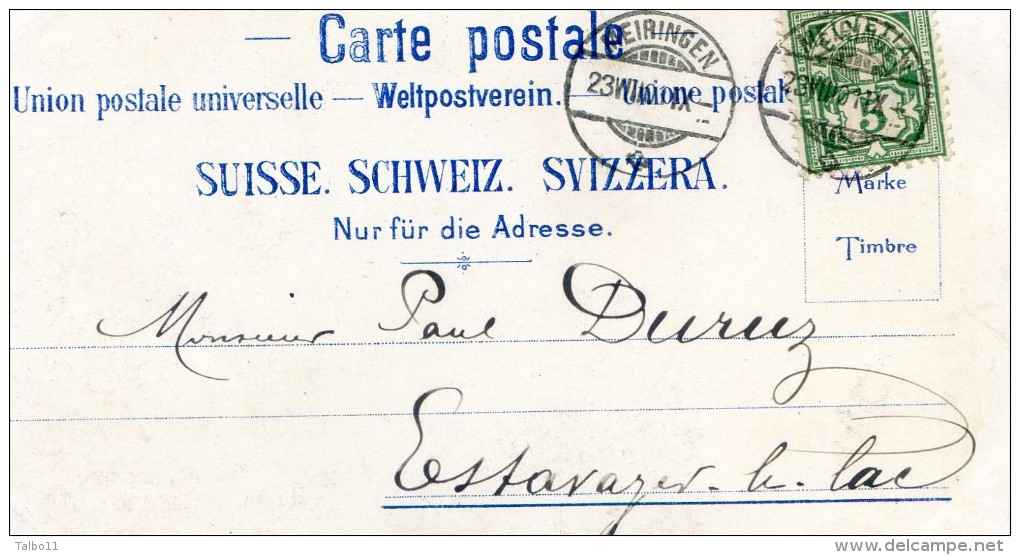 — Carte postale
Union postale universelle — Weltpostverein. — Unione postale
SUISSE. SCHWEIZ. SVIZZERA.
Nur für die Adresse.
MEIRINGEN
23 VIII 01 IX
5
Marke
Timbre
Monsieur Paul Duruz
Estavayer-le-lac
Talbo11
delcampe.net